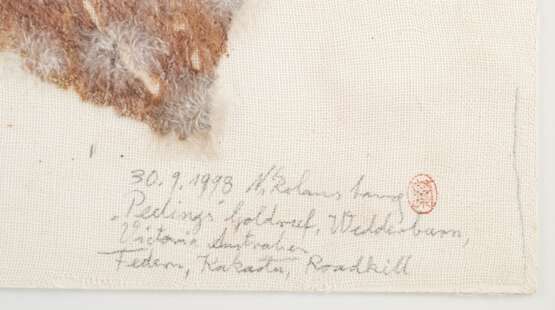 30.9.1993 Nikolaus Lang
„Peelings" Goldreef, Wedderburn,
Victoria Australien
Federn, Kakadu, Roadkill